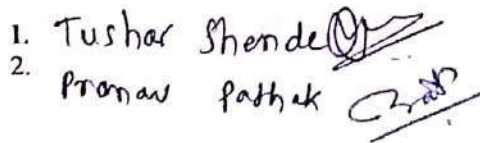 1. Tushar Shende
2.
Pranav Pathak